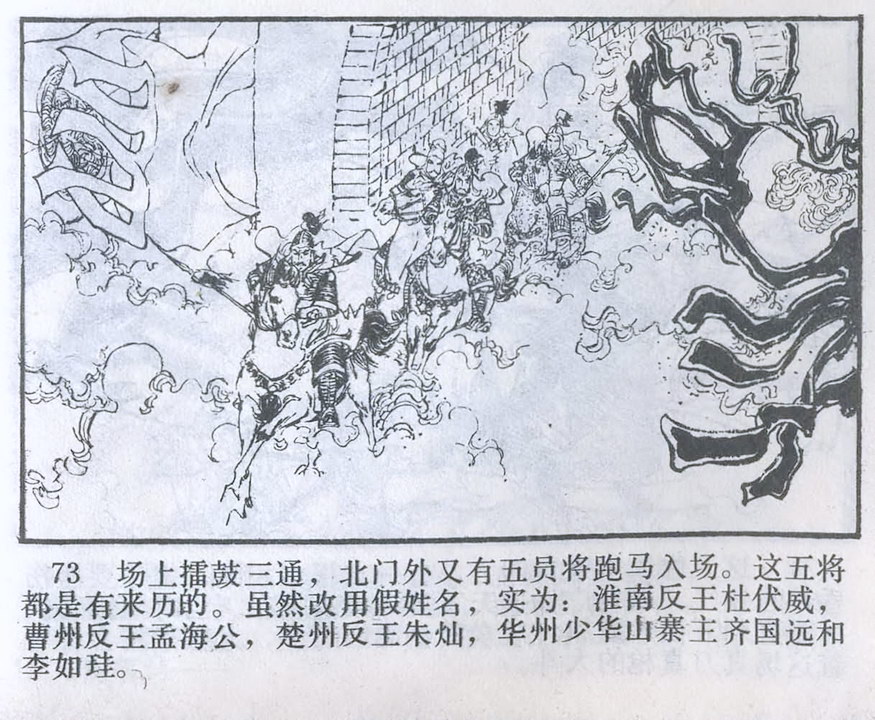 73 场上擂鼓三通，北门外又有五员将跑马入场。这五将
都是有来历的。虽然改用假姓名，实为：淮南反王杜伏威，
曹州反王孟海公，楚州反王朱灿，华州少华山寨主齐国远和
李如珪。